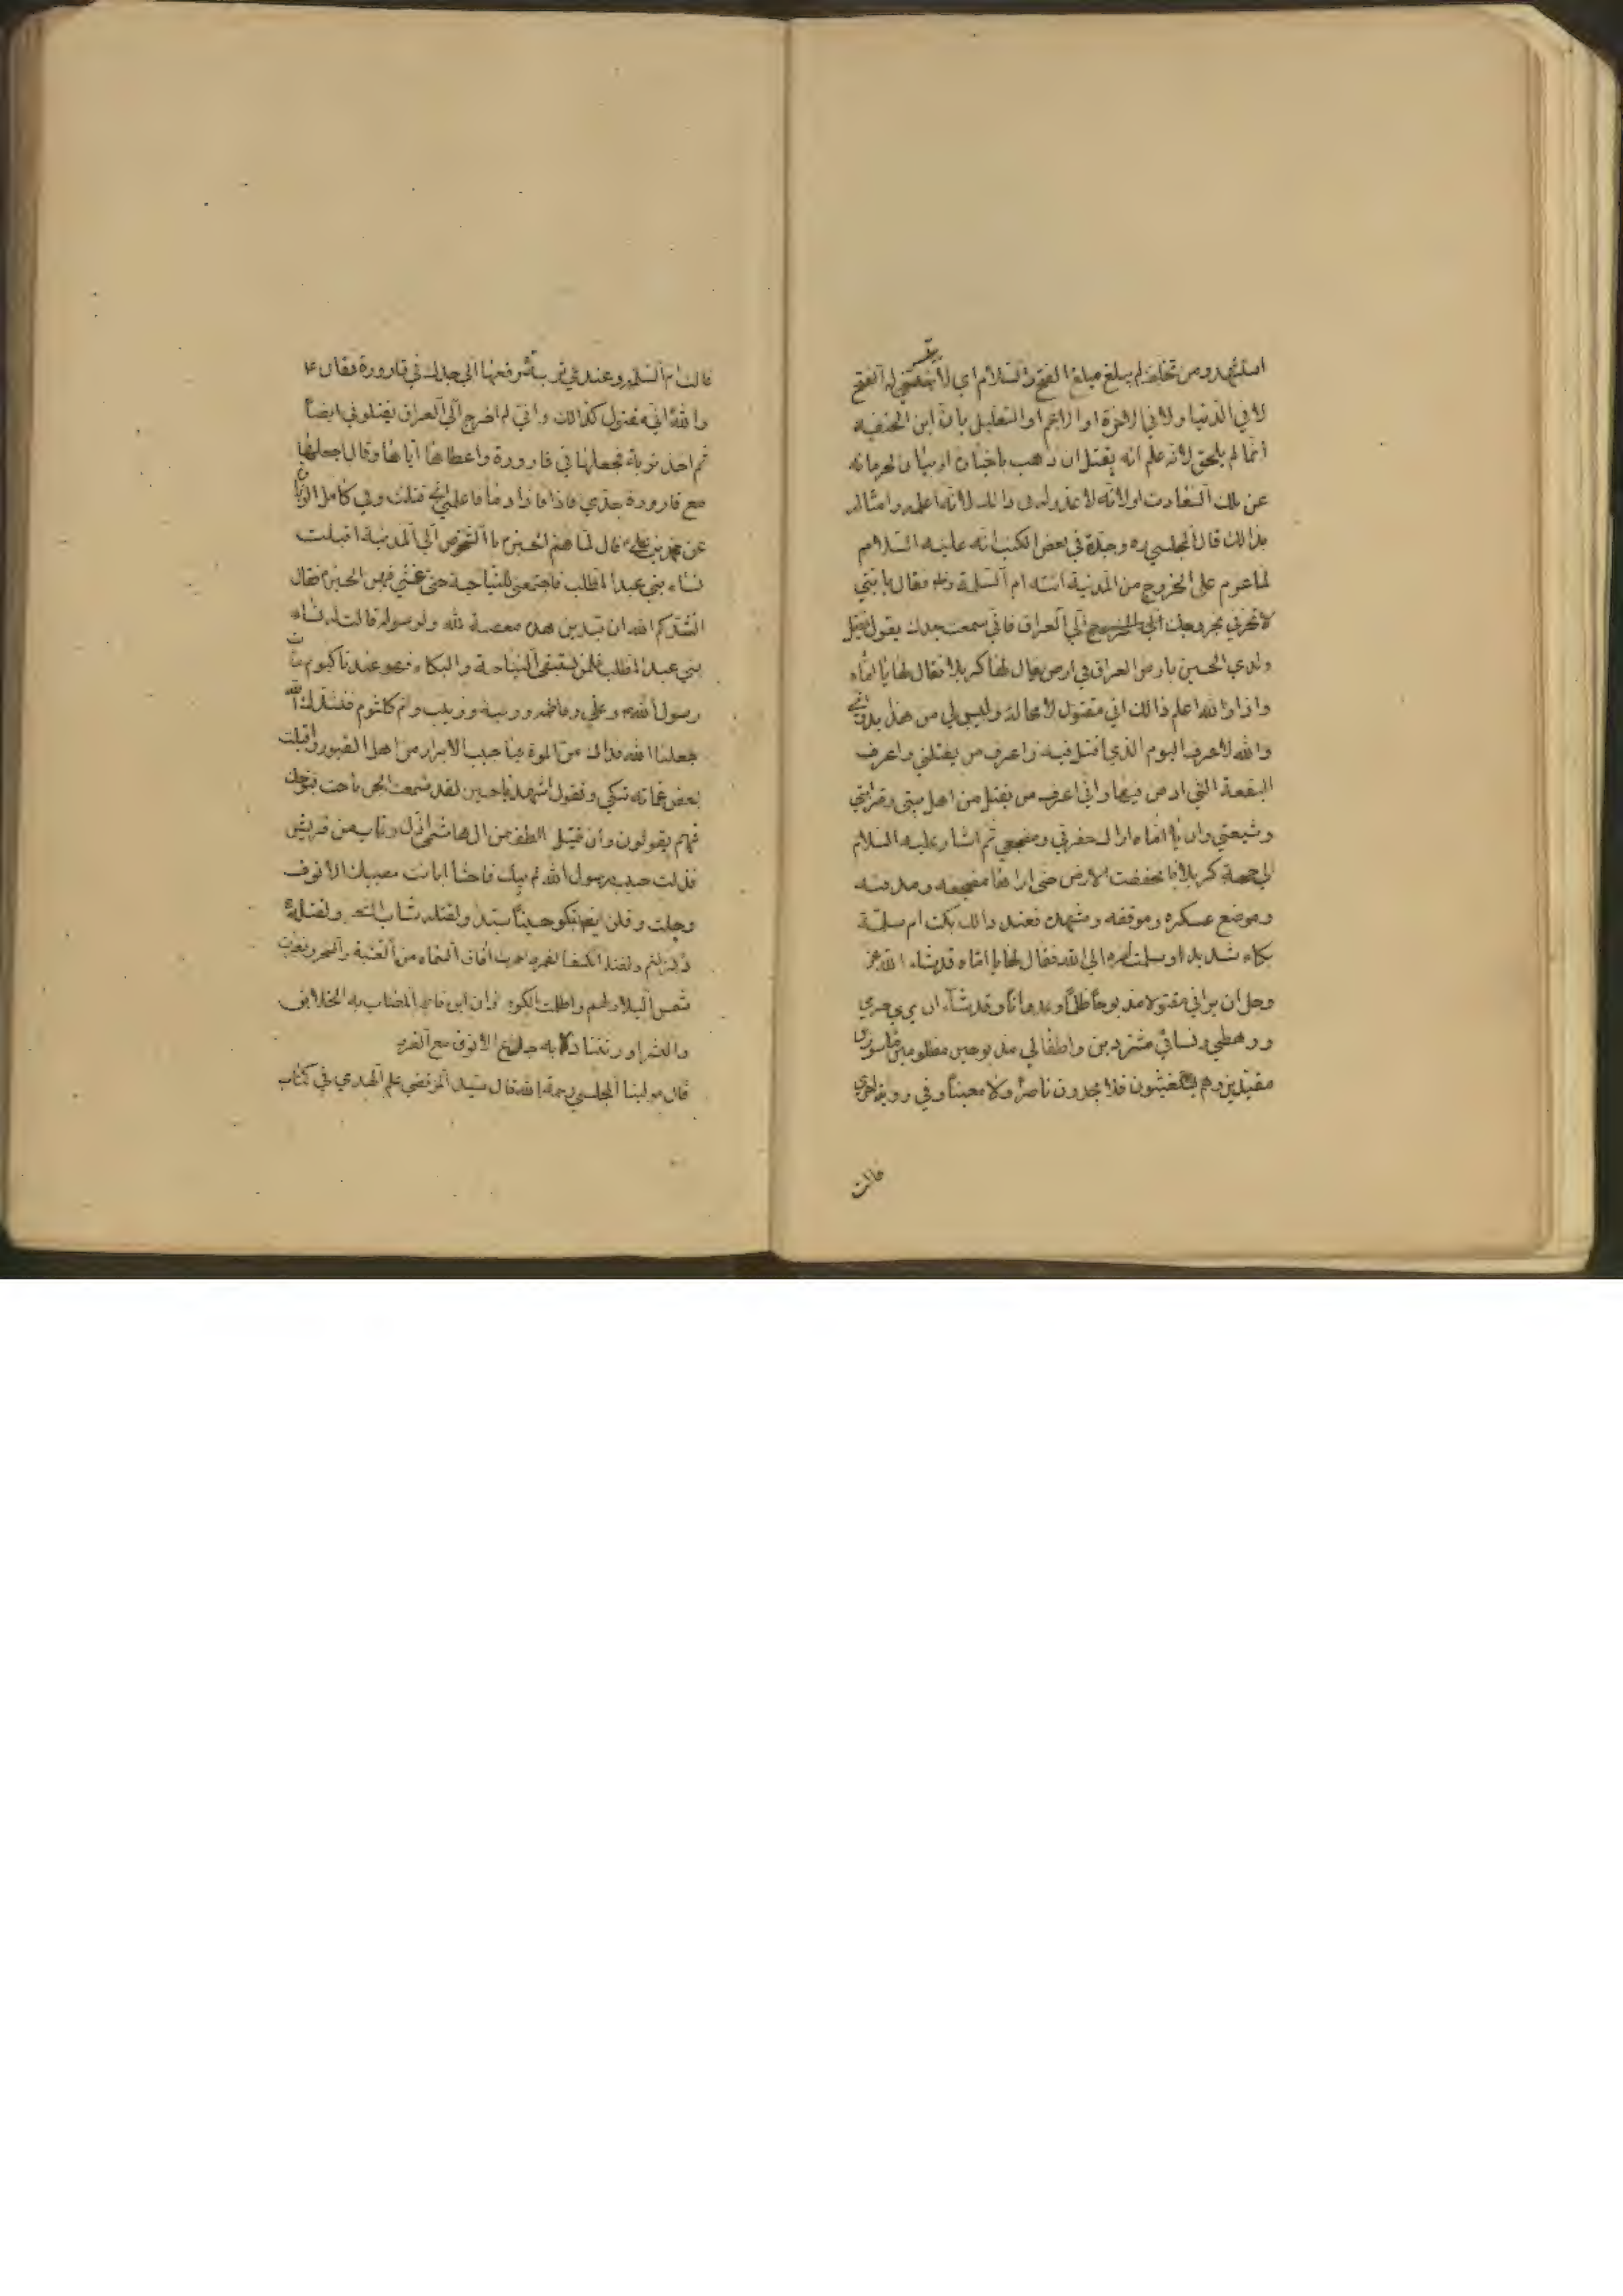 استشهد ومن تخلف لم يبلغ مبلغ الفتح والسلام اي لا يتيسر له الفتح
لا في الدنيا ولا في الاخرة او الاعم او التعليل بان ابن الحنفيه
انما لم يلحق لانه علم انه يقتل ان ذهب باخباره او بيان لحرمانه
عن تلك السعادت او لانه لا عذر له في ذالك لانه اعلمه وامثاله
بذالك قال المجلسي ره وجدت في بعض الكتب انه عليه السلام
لما عزم على الخروج من المدنية اتته ام السلمة وقال يا بني
لا تحزني بخروجك الى العراق فاني سمعت جدك يقول يقتل
ولدي الحسين بارض العراق في ارض يقال لها كربلا فقال لها يا اماه
وانا والله اعلم ذالك اني مقتول لا محالة وليس لي من هذا بد واني
والله لاعرف اليوم الذي اقتل فيه واعرف من يقتلني واعرف
البقعة التي ادفن فيها واني اعرف من يقتل من اهل بيتي وقرابتي
وشيعتي وان يا اماه اراك حفرتي ومضجعي ثم اشار عليه السلام
الى جهة كربلا فانخفضت الارض حتى اراها مضجعه ومدفنه
وموضع عسكره وموقفه ومشهده فعند ذالك بكت ام سلمة
بكاء شديدا وسلمت امره الى الله فقال لها يا اماه قد شاء الله عز
وجل ان يراني مقتولا مذبوحا ظلما وعدوانا وقد شاء ان يرى حرمي
ورهطي ونسائي مشردين واطفالي مذبوحين مظلومين ماسورين
مقيدين وهم يستغيثون فلا يجدون ناصرا ولا معينا وفي رواية اخرى
قالت
قالت ام السلمه وعندي تربة دفعها الي جدك في قارورة فقال ع
والله اني مقتول كذالك واني لم اخرج الى العراق يقتلوني ايضا
ثم اخذ تربة فجعلها في قارورة واعطاها اياها وقال اجعلها
مع قارورة جدي فاذا فاذا دما فاعلمي اني قتلت وفي كامل الزيارة
عن محمد بن علي ع قال لما هم الحسين ع بالشخوص الى المدنية اقبلت
نساء بني عبد المطلب فاجتمعن للنياحة حتى مشى فيهن الحسين ع فقال
انشدكم الله ان تبدين هذه معصية لله ولرسوله قالت له نساء
بني عبد المطلب فلمن نستبقي النياحة والبكاء فهو عندنا كيوم مات
رسول الله ص وعلي وفاطمه ورقية وزينب وام كلثوم فننشدك الله
جعلنا الله فداك من الموة يا حبيب الابرار من اهل القبور واقبلت
بعض عماته تبكي وتقول اشهد يا حسين لقد سمعت الجن ناحت بنوحك
فهم يقولون وان قتيل الطف من ال هاشم اذل رقاب من قريش
فذلت حبيب رسول الله لم يك فاحشا ابانت مصيبك الانوف
وجلت وقلن ايضا ابكو حسينا سيدا ولقتله شاب الشعر ولقتله
زلزلتم ولقتله انكسف القمر احمرت افاق السماء من العشية والسحر وتغيرت
شمس البلاد لهم واظلمت الكور ذاك ابن فاطمه المصاب به الخلايق
والبشر اورثتنا ذلا به جدع الانوف مع الغرر
قال مولينا المجلسي رحمة الله قال سيد المرتضى علم الهدي في كتاب